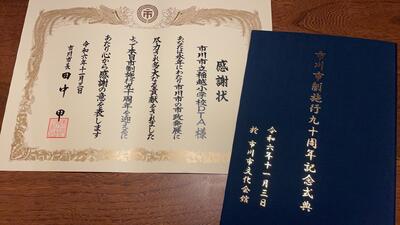 感謝状
市川市立稲越小学校PTA 様
あなたは永年にわたり市川市の市政発展に
尽力され多大なる貢献をされました
よって本日市制施行九十周年を迎えるに
あたり心から感謝の意を表します
令和六年十一月三日
市川市長 田中 甲
市川市制施行九十周年記念式典
令和六年十一月三日
於 市川市文化会館